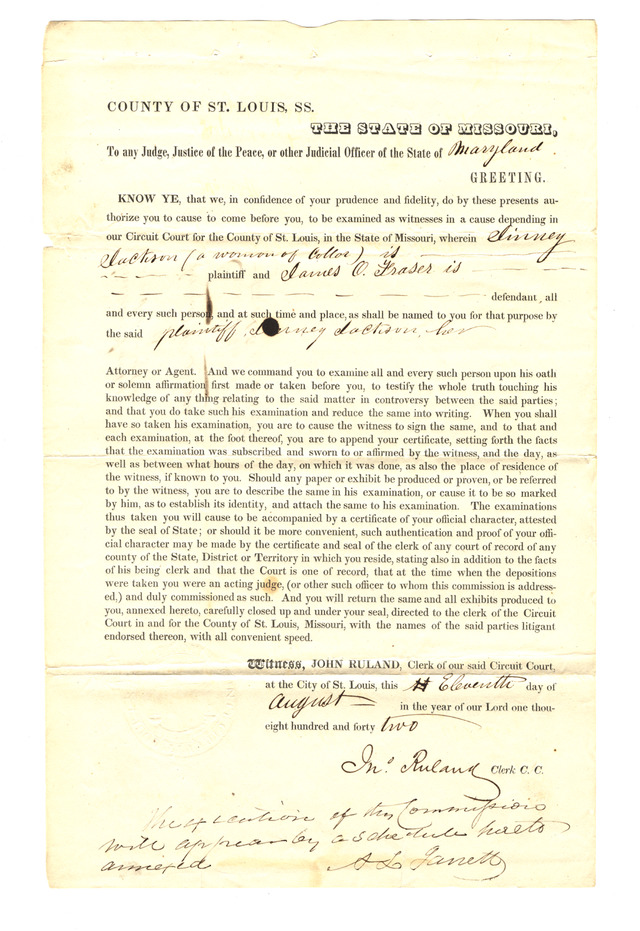 COUNTY OF ST. LOUIS, SS.
THE STATE OF MISSOURI,
To any Judge, Justice of the Peace, or other Judicial Officer of the State of Maryland.
GREETING.
KNOW YE, that we, in confidence of your prudence and fidelity, do by these presents au-
thorize you to cause to come before you, to be examined as witnesses in a cause depending in
our Circuit Court for the County of St. Louis, in the State of Missouri, wherein Jinney
Jackson (a woman of Color) is
plaintiff and James O. Fraser is
defendant, all
and every such person, and at such time and place, as shall be named to you for that purpose by
the said plaintiff Jinney Jackson, her
Attorney or Agent. And we command you to examine all and every such person upon his oath
or solemn affirmation first made or taken before you, to testify the whole truth touching his
knowledge of any thing relating to the said matter in controversy between the said parties;
and that you do take such his examination and reduce the same into writing. When you shall
have so taken his examination, you are to cause the witness to sign the same, and to that and
each examination, at the foot thereof, you are to append your certificate, setting forth the facts
that the examination was subscribed and sworn to or affirmed by the witness, and the day, as
well as between what hours of the day, on which it was done, as also the place of residence of
the witness, if known to you. Should any paper or exhibit be produced or proven, or be referred
to by the witness, you are to describe the same in his examination, or cause it to be so marked
by him, as to establish its identity, and attach the same to his examination. The examinations
thus taken you will cause to be accompanied by a certificate of your official character, attested
by the seal of State; or should it be more convenient, such authentication and proof of your offi-
cial character may be made by the certificate and seal of the clerk of any court of record of any
county of the State, District or Territory in which you reside, stating also in addition to the facts
of his being clerk and that the Court is one of record, that at the time when the depositions
were taken you were an acting judge, (or other such officer to whom this commission is address-
ed,) and duly commissioned as such. And you will return the same and all exhibits produced to
you, annexed hereto, carefully closed up and under your seal, directed to the clerk of the Circuit
Court in and for the County of St. Louis, Missouri, with the names of the said parties litigant
endorsed thereon, with all convenient speed.
Witness, JOHN RULAND, Clerk of our said Circuit Court,
at the City of St. Louis, this Eleventh day of
August in the year of our Lord one thou-
eight hundred and forty two
Jno. Ruland Clerk C. C.
The execution of this Commission
will appear by a schedule hereto
annexed A L Jarrett